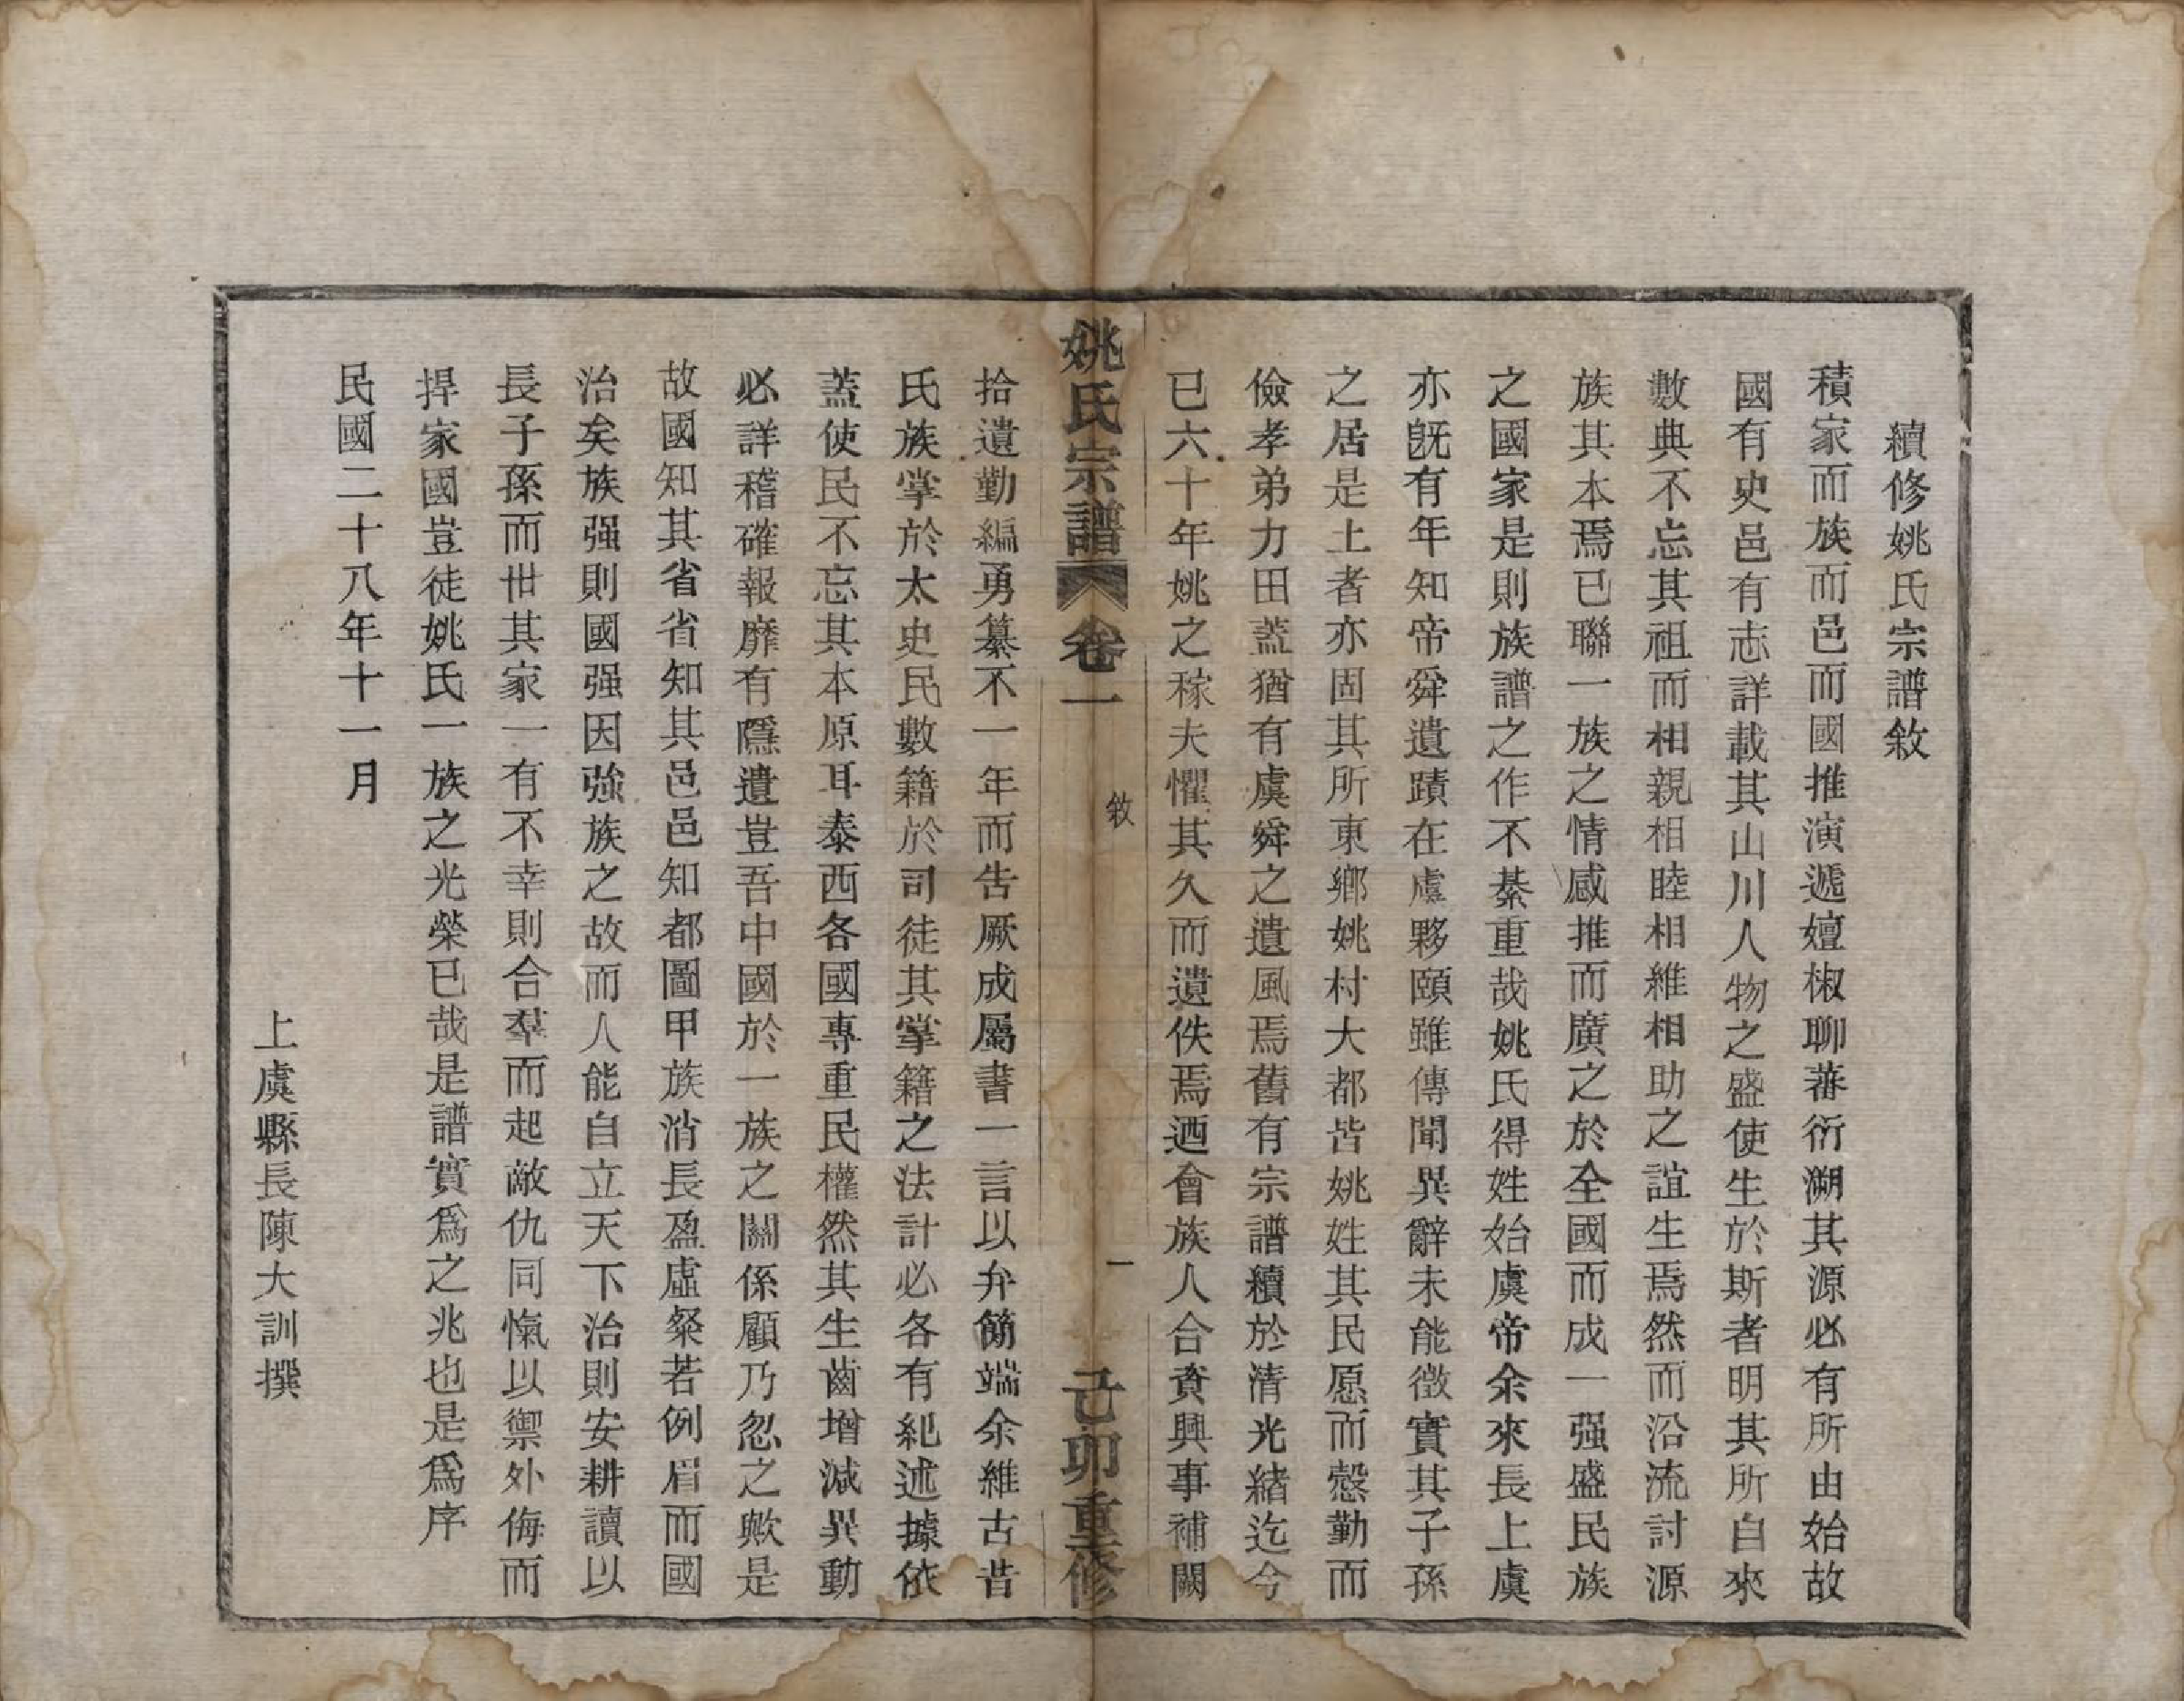 續修姚氏宗譜敘
積家而族而邑而國推演遞嬗椒聊蕃衍溯其源必有所由始故
國有史邑有志詳載其山川人物之盛使生於斯者明其所自來
數典不忘其祖而相親相睦相維相助之誼生焉然而沿流討源
族其本焉已聯一族之情感推而廣之於全國而成一强盛民族
之國家是則族譜之作不綦重哉姚氏得姓始虞帝余來長上虞
亦旣有年知帝舜遺蹟在虞夥頤雖傳聞異辭未能徵實其子孫
之居是土者亦固其所東鄉姚村大都皆姚姓其民愿而慤勤而
儉孝弟力田蓋猶有虞舜之遺風焉舊有宗譜續於清光緒迄今
已六十年姚之稼夫懼其久而遺佚焉迺會族人合資興事補闕
姚氏宗譜 卷一 敘 一 己卯重修
拾遺勤編勇纂不一年而告厥成屬書一言以弁簡端余維古昔
氏族掌於太史民數籍於司徒其掌籍之法計必各有紀述據依
蓋使民不忘其本原耳泰西各國專重民權然其生齒增減異動
必詳稽確報靡有隱遺豈吾中國於一族之關係顧乃忽之歟是
故國知其省省知其邑邑知都圖甲族消長盈虛粲若例眉而國
治矣族强則國强因強族之故而人能自立天下治則安耕讀以
長子孫而世其家一有不幸則合羣而起敵仇同愾以禦外侮而
捍家國豈徒姚氏一族之光榮已哉是譜實爲之兆也是爲序
民國二十八年十一月
上虞縣長陳大訓撰